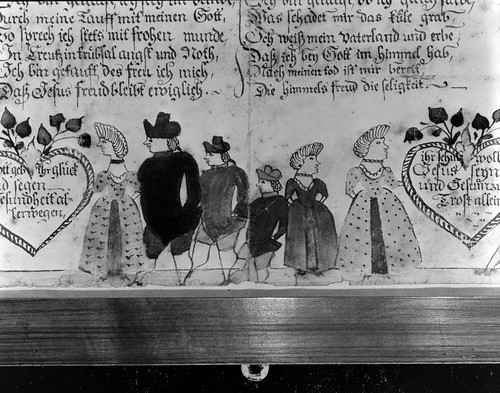 Durch meine Tauff mit meinen Gott,
So sprech ich stets mit frohen munde,
In Creutz, trübsal angst und Noth,
Ich bin getaufft des freu ich mich,
Daß Jesus freud bleibt ewiglich.
Was schadet mir das küle grab
Ich weiß mein Vaterland und erbe,
Daß ich bey Gott im himmel hab,
Nach meinen tod ist mir bereit
Die himmels freud die seligkeit
Gott geb ihr glück
und segen
Gesundheit al
lerwegen,
ihr sey
Jesus seyn
und
Trost allein